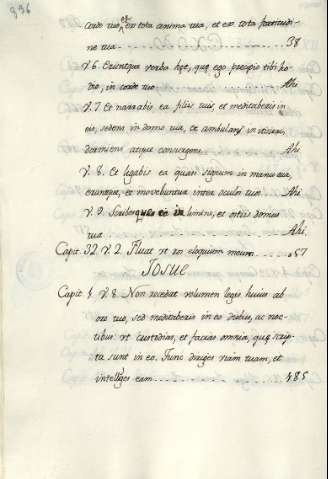 996
corde tuo, et ex tota anima tua, et ex tota fortitudi-
ne tua ........ 38
V. 6. Eruntque verba hęc, quę ego precipio tibi ho-
die, in corde tuo ........ Ahi
V. 7. Et narrabis ea filijs tuis, et meditaberis in
eis, sedens in domo tua, et ambulans in itinere,
dormiens atque consurgens ........ Ahi
V. 8. Et ligabis ea quasi signum in manu tua,
eruntque, et movebuntur inter oculos tuos. Ahi
V. 9. Scribesque ea in limine, et ostiis domus
tuę ........ Ahi.
Capit. 32. V. 2. Fluat ut ros eloquium meum ... 57
JOSUE
Capit. 1. V. 8. Non recedat volumen legis huius ab
ore tuo, sed meditaberis in eo diebus, ac noc-
tibus: ut custodias, et facias omnia, quę scrip-
ta sunt in eo. Tunc diriges viam tuam, et
intelliges eam ........ 485